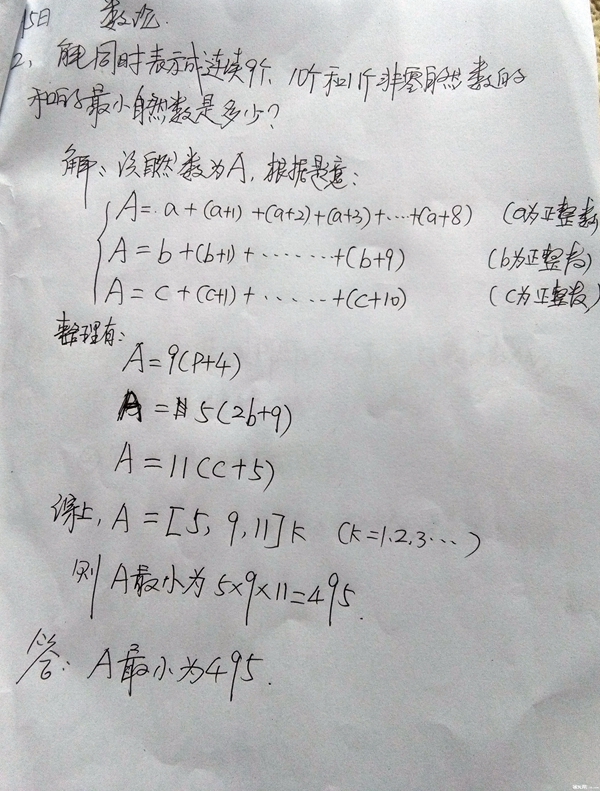 15日 数论.
2、能同时表示成连续9个、10个和11个非零自然数的
和的最小自然数是多少?
解:设自然数为A,根据题意:
A=a+(a+1)+(a+2)+(a+3)+…+(a+8) (a为正整数)
A=b+(b+1)+……+(b+9) (b为正整数)
A=c+(c+1)+……+(c+10) (c为正整数)
整理有:
A=9(P+4)
A=5(2b+9)
A=11(c+5)
综上,A=[5,9,11]k (k=1.2.3…)
则A最小为5×9×11=495.
答:A最小为495.